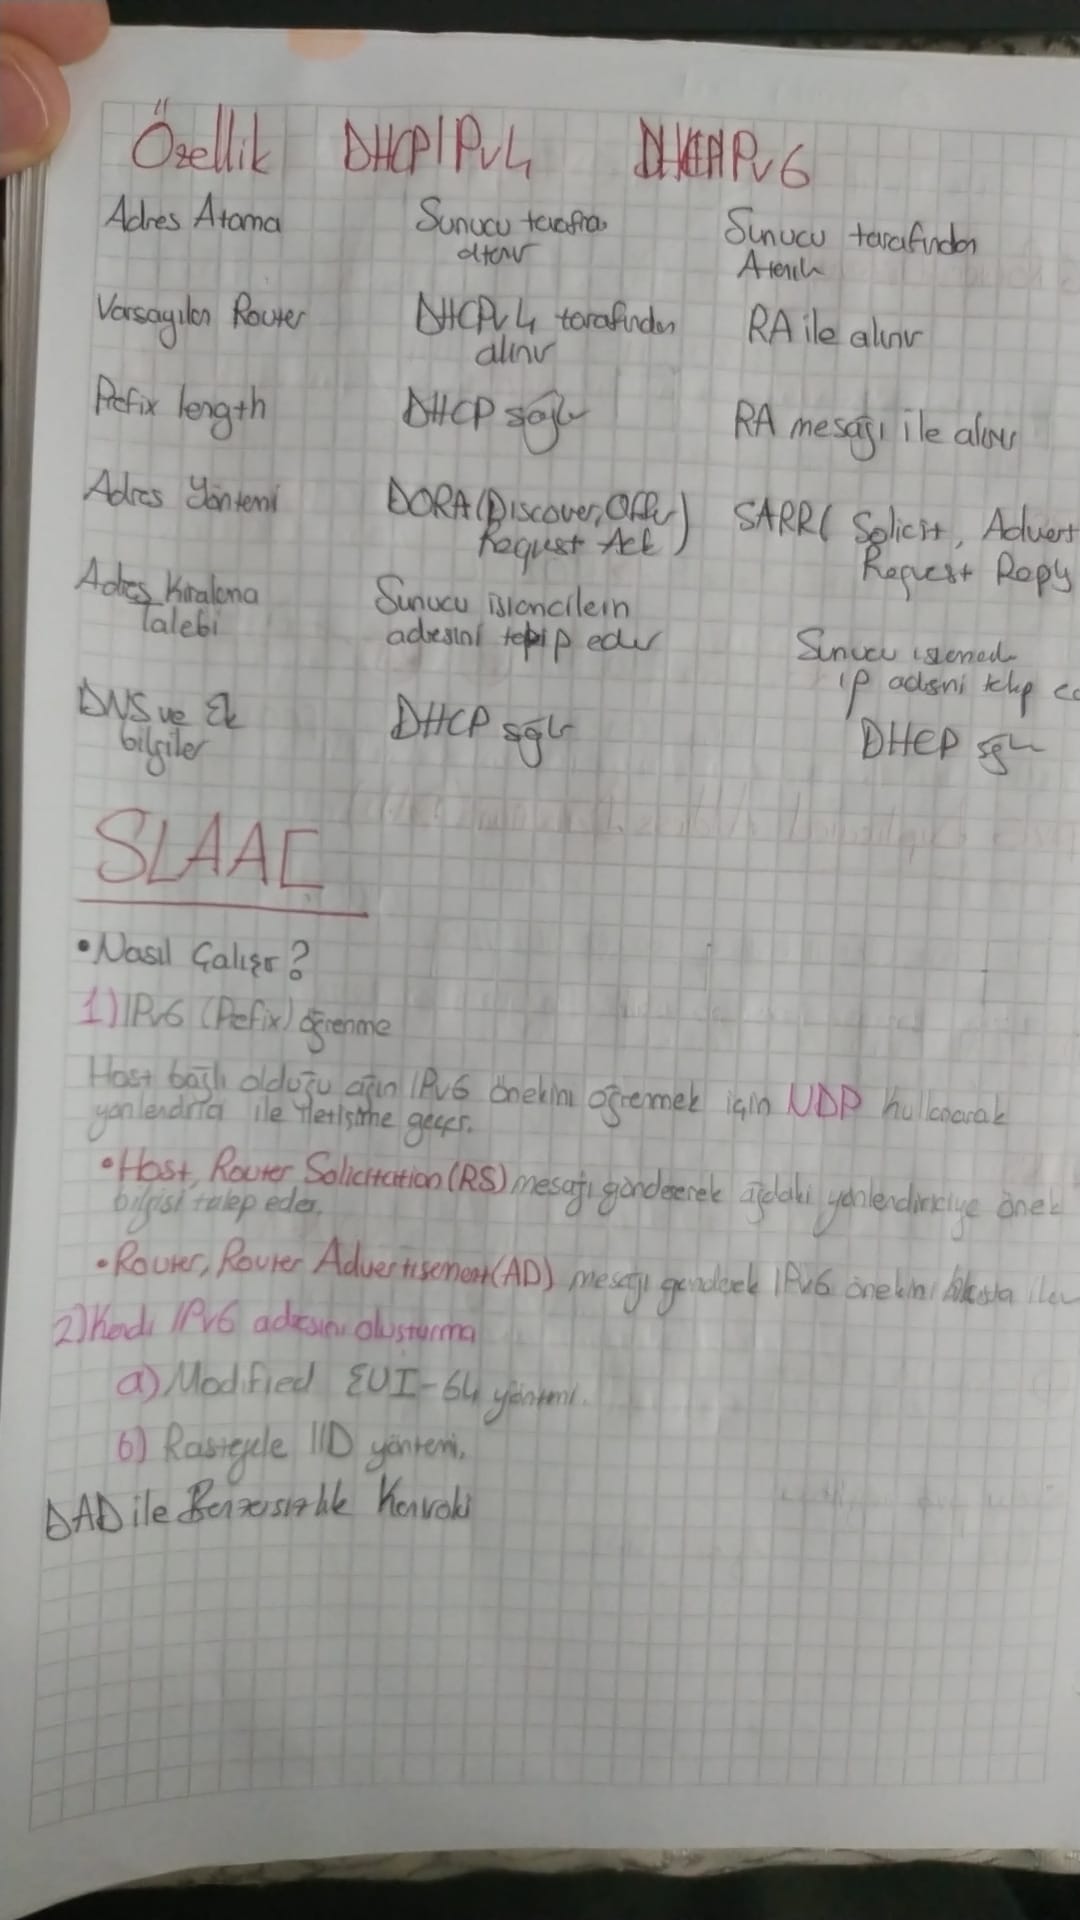 Özellik DHCPIPv4 DHCPIPv6
Adres Atama Sunucu tarafından atanır Sunucu tarafından Atanır
Varsayılan Router DHCPv4 tarafından alınır RA ile alınır
Prefix length DHCP sağlar RA mesajı ile alınır
Adres Yöntemi DORA (Discover, Offer Request Ack) SARR( Solicit, Advert Request Reply
Adres Kiralama Talebi Sunucu istemcilerin adresini takip eder Sunucu ip adresini takip
DNS ve Ek bilgiler DHCP sağlar DHCP sağlar
SLAAC
• Nasıl Çalışır?
1) IPv6 (Prefix) öğrenme
Host bağlı olduğu ağın IPv6 önekini öğremek için UDP kullanarak
yönlendirici ile iletişime geçer.
• Host, Router Solicitation (RS) mesajı göndererek ağdaki yönlendiriciye önek
bilgisi talep eder.
• Router, Router Advertisement (AD) mesajı göndererek IPv6 önekini
2) Kendi IPv6 adresini oluşturma
a) Modified EUI-64 yöntemi.
b) Rastgele IID yöntemi.
DAD ile Benzersizlik